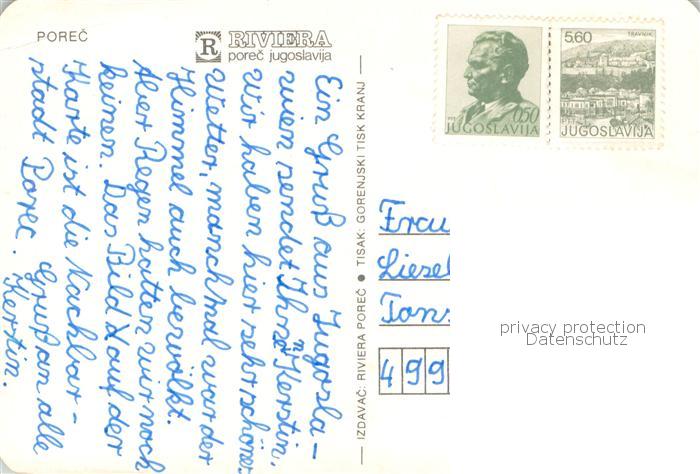 POREČ
R RIVIERA
poreč jugoslavija
Ein Gruß aus Jugosla-
wien sendet Ihnen Kerstin,
Wir haben hier sehr schönes
Wetter, manchmal war der
Himmel auch bewölkt.
Aber Regen hatten wir noch
keinen. Das Bild auf der
Karte ist die Nachbar-
stadt Porec. Gruß an alle
Kerstin.
IZDAVAČ: RIVIERA POREČ ● TISAK: GORENJSKI TISK KRANJ
0.50
JUGOSLAVIJA
5.60
TRAVNIK
JUGOSLAVIJA
Frau
Liesel
Tons
499
privacy protection
Datenschutz